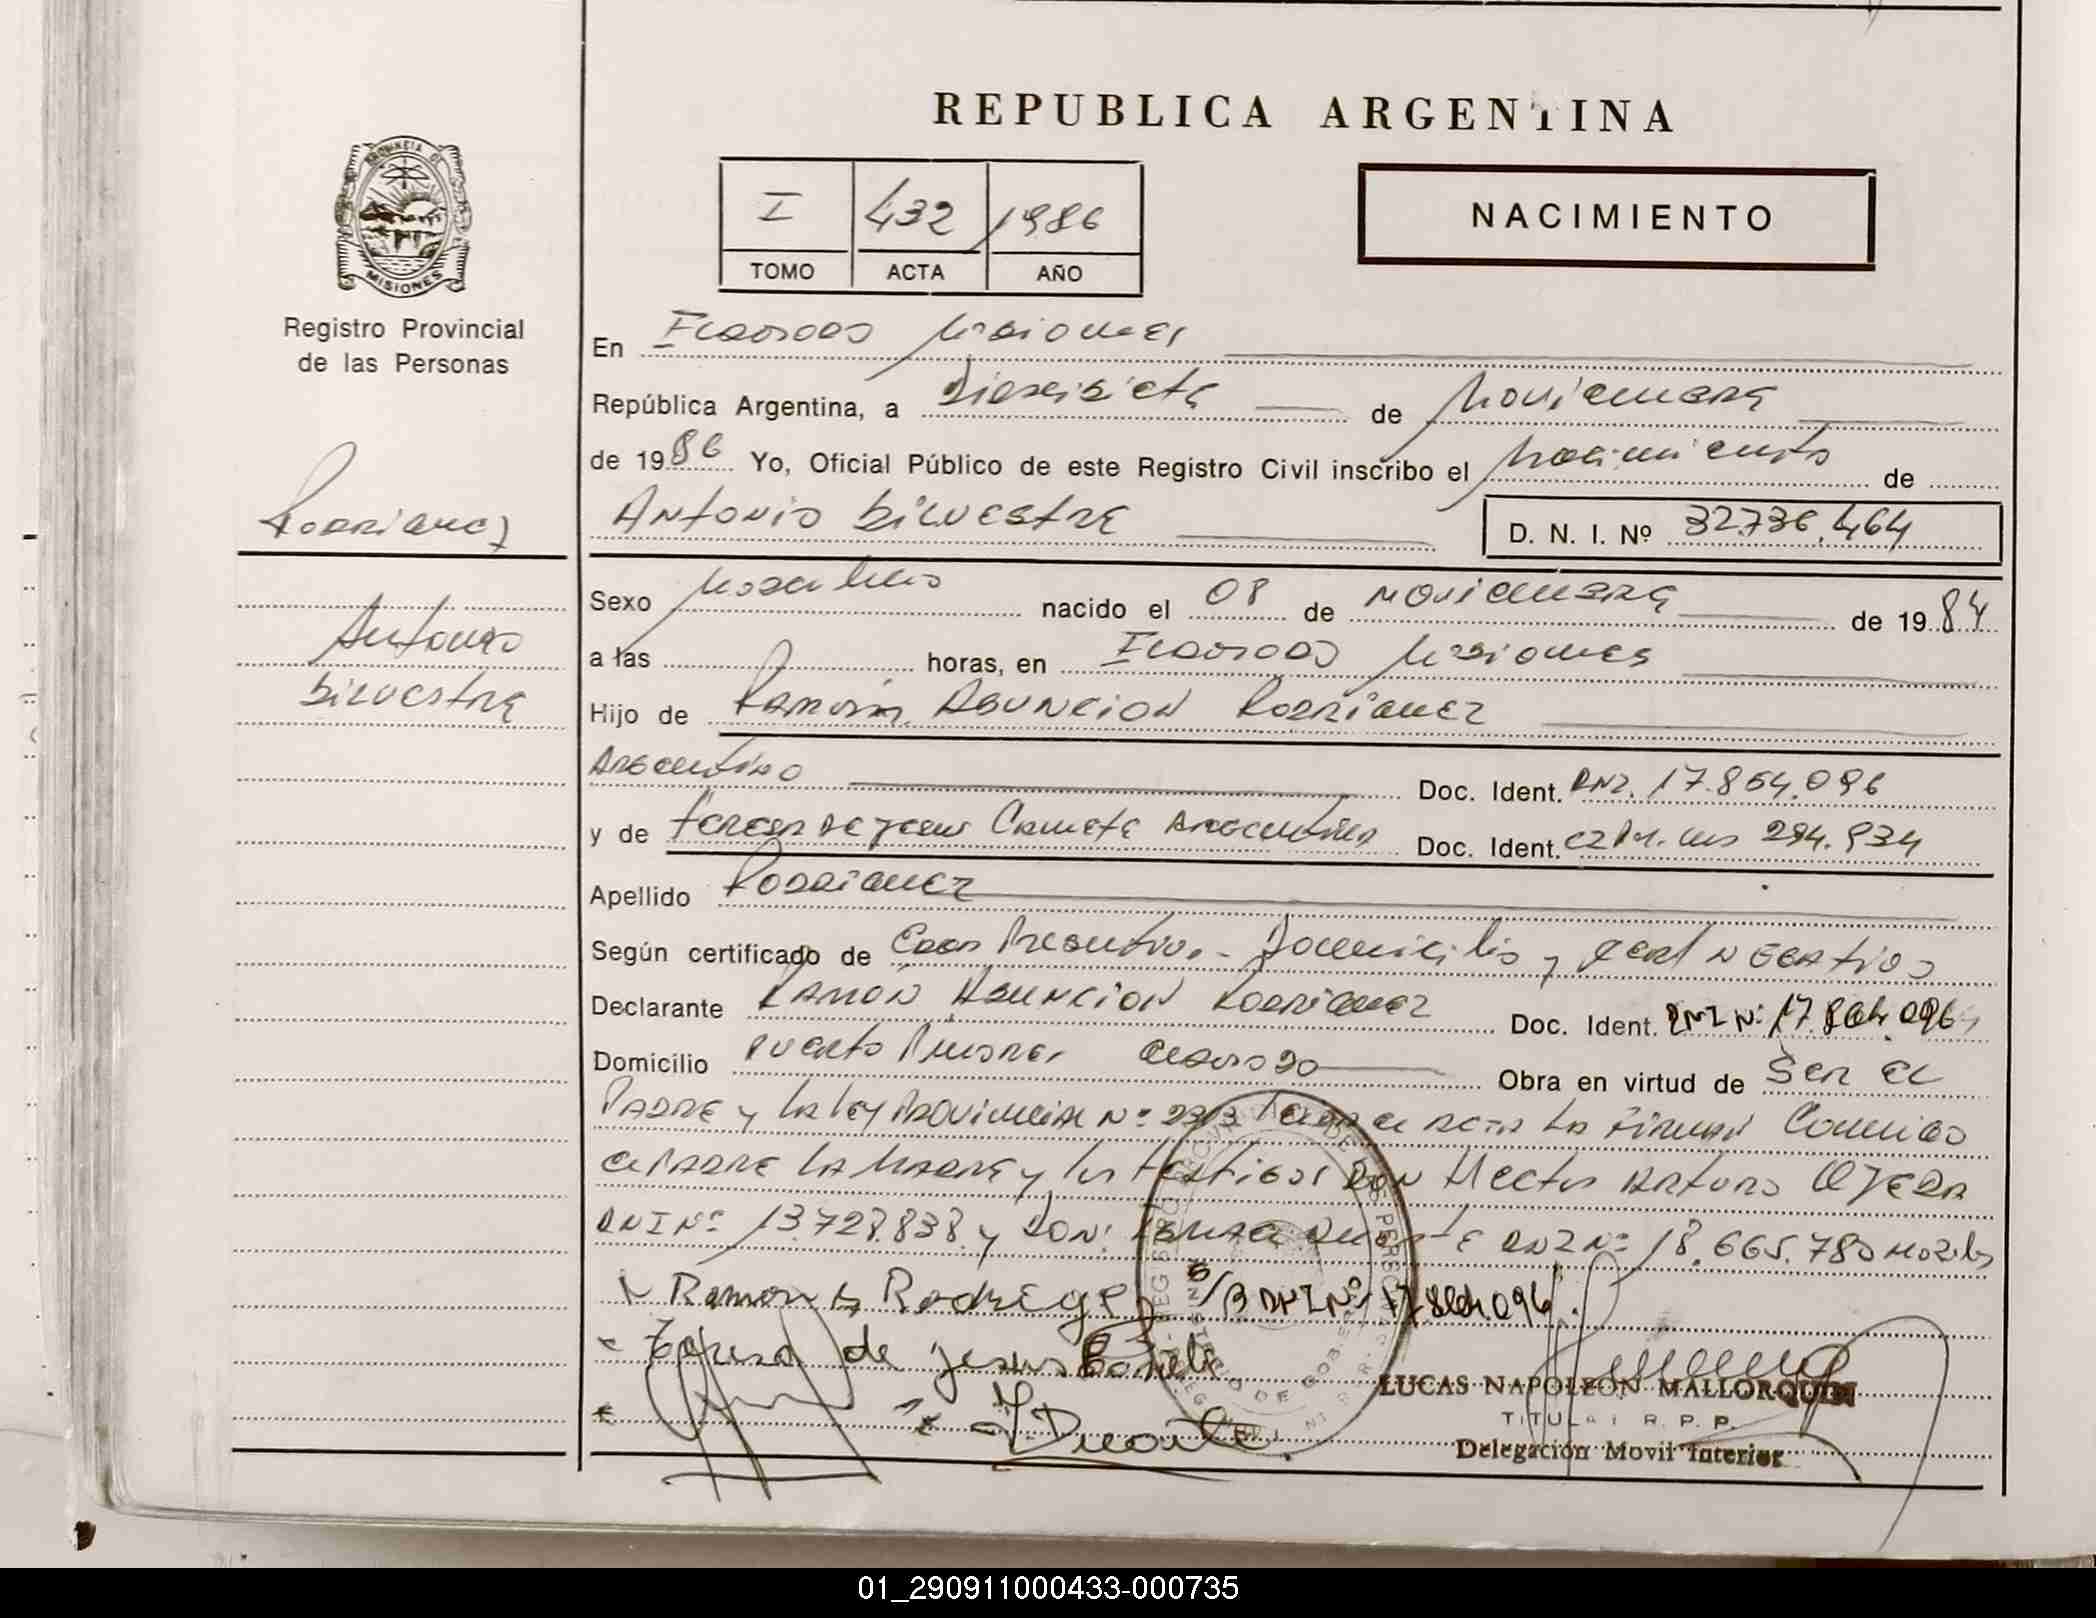 REPUBLICA ARGENTINA
I 432 1986
TOMO ACTA AÑO
NACIMIENTO
PROVINCIA DE
MISIONES
Registro Provincial
de las Personas
Rodriguez
Antonio
Silvestre
En Eldorado Misiones
República Argentina, a Diecisiete de Noviembre
de 1986 Yo, Oficial Público de este Registro Civil inscribo el Nacimiento de
Antonio Silvestre D. N. I. Nº 32.736.464
Sexo Masculino nacido el 08 de Noviembre de 1984
a las horas, en Eldorado Misiones
Hijo de Ramón Asuncion Rodriguez
Argentino Doc. Ident. DNI. 17.864.096
y de Teresa de Jesus Cañete Argentina Doc. Ident. 294.934
Apellido Rodriguez
Según certificado de Edad Presuntiva - Domicilio y Cert Negativo
Declarante Ramón Asuncion Rodriguez Doc. Ident. DNI Nº 17.864.096
Domicilio Puerto Eldorado Obra en virtud de Ser el
Padre y la Ley Provincial Nº Leida el acta la Firman Conmigo
el Padre la Madre y los testigos Don Hector Arturo Ojeda
DNI Nº 13.728.838 y Don: Duarte DNI Nº 18.665.780
Ramon A Rodriguez S/B DNI Nº 17864096.
Teresa de Jesus Cañete
Duarte
LUCAS NAPOLEON MALLORQUIN
TITULAR R. P. P.
Delegación Movil Interior
01_290911000433-000735